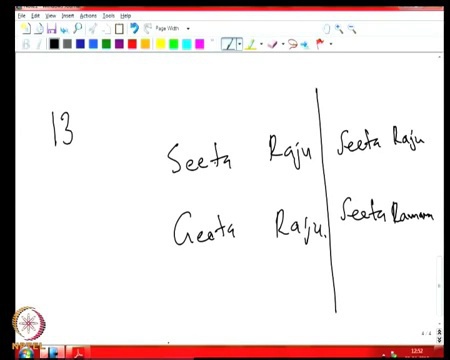 File Edit View Insert Actions Tools Help
Page Width
13
Seeta Raju Seeta Raju
Geeta Raju. Seeta Ramana
12:52